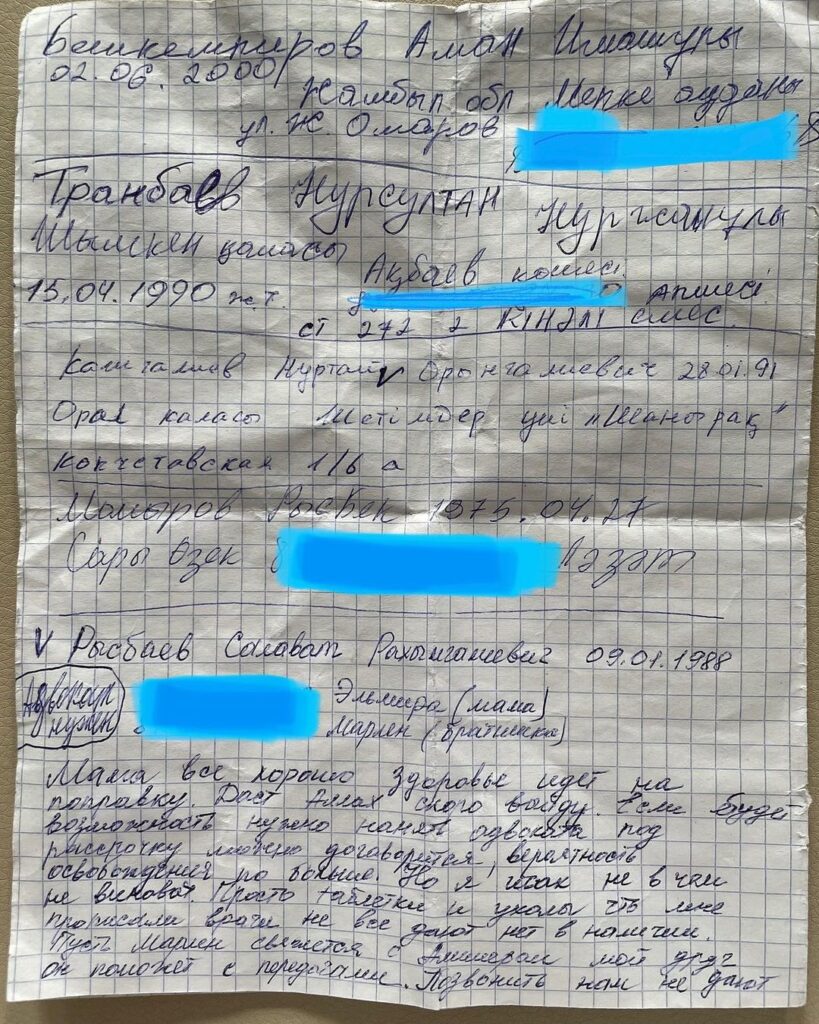 Башкемпиров Аман Имашулы
02.06.2000
Жамбыл обл Мерке ауданы
ул. Ж. Омаров
Транбаев Нурсултан Нуржанулы
Шымкен қаласы
Ақбаев көшесі
15.04.1990 ж.т. апшесі
ст 272 2 КІНӘЛІ емес.
Калигалиев Нуртай Орынгалиевич 28.01.91
Орал каласы Жетімдер үйі "Шаңырақ"
кокчетавская 1/6 а
Момыров Рысбек 1975.04.27
Сары Өзек Ләззат
V Рысбаев Салават Рахымгалиевич 09.01.1988
Адвокат нужен
Эльмира (мама)
Марлен (братишка)
Мама все хорошо здоровье идет на
поправку. Даст Аллах скоро выйду. Если будет
возможность нужно нанять адвоката под
рассрочку можно договорится, вероятность
освобождения по больше. Но я итак не в чем
не виноват. Просто таблетки и уколы что мне
прописали врачи не все дают нет в наличии.
Пусть Марлен свяжется с мой друг
он поможет с передачами. Позвонить нам не дают